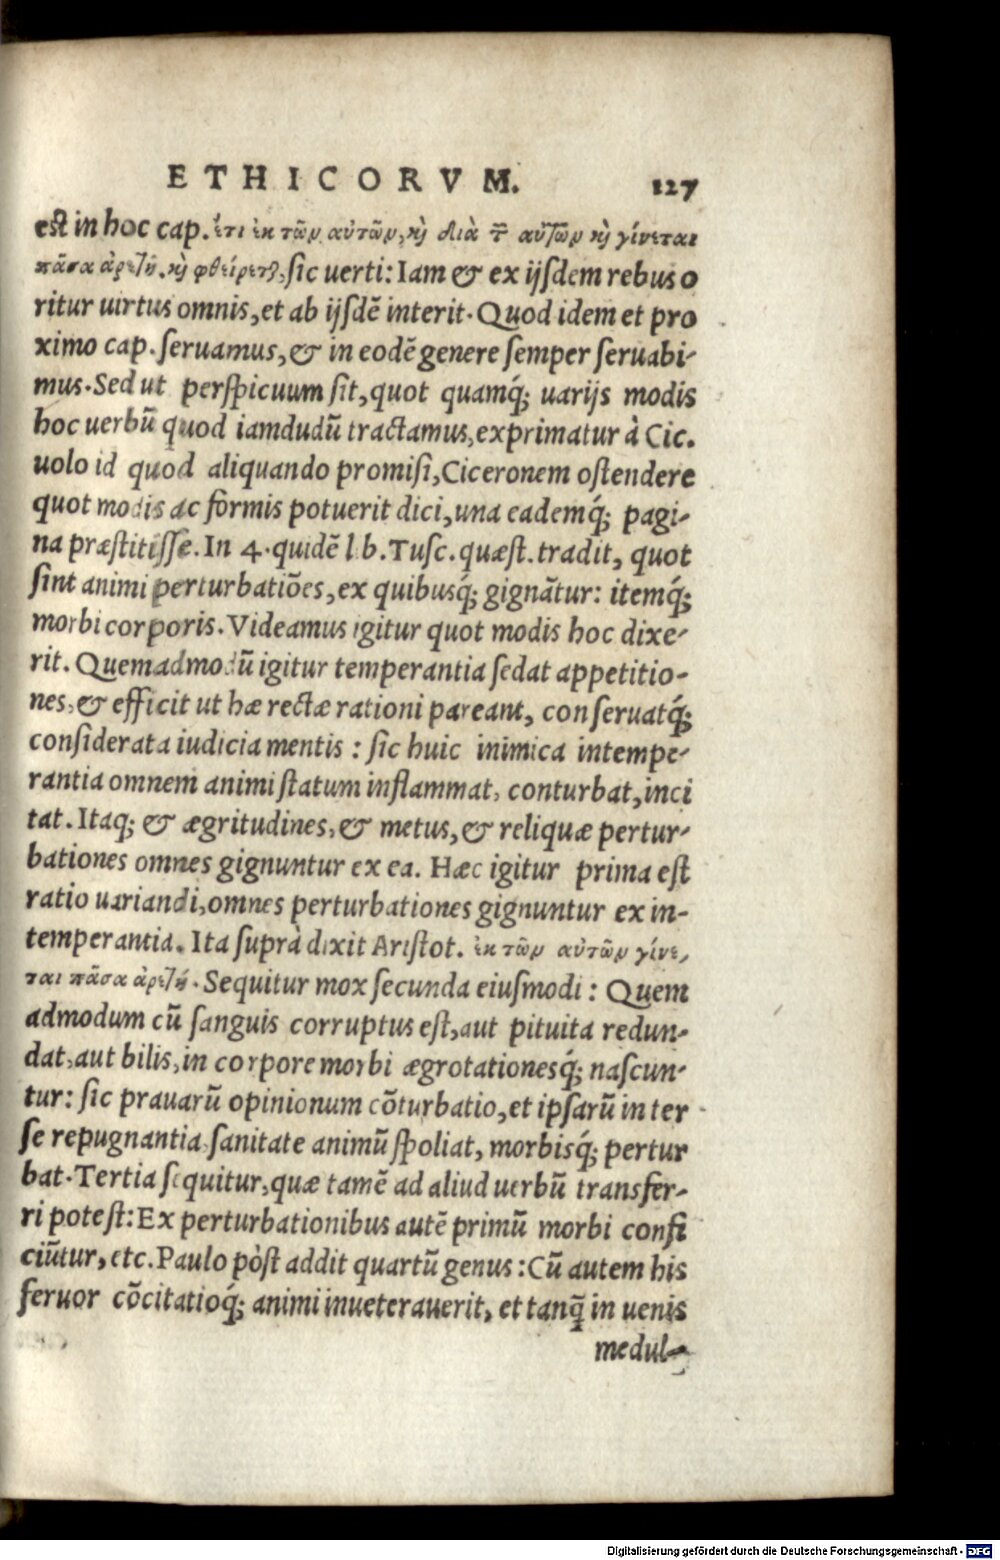 ETHICORVM. 127
est in hoc cap. ἔτι ἐκ τῶν αὐτῶν, καὶ διὰ τῶν αὐτῶν καὶ γίνεται
πᾶσα ἀρετὴ, καὶ φθείρεται, sic uerti: Iam & ex ijsdem rebus o
ritur uirtus omnis, et ab ijsdē interit. Quod idem et pro
ximo cap. seruamus, & in eodē genere semper seruabi-
mus. Sed ut perspicuum sit, quot quamq́; uarijs modis
hoc uerbū quod iamdudū tractamus, exprimatur à Cic.
uolo id quod aliquando promisi, Ciceronem ostendere
quot modis ac formis potuerit dici, una eademq́; pagi-
na præstitisse. In 4. quidē lib. Tusc. quæst. tradit, quot
sint animi perturbatiōes, ex quibusq́; gignātur: itemq́;
morbi corporis. Videamus igitur quot modis hoc dixe-
rit. Quemadmodū igitur temperantia sedat appetitio-
nes, & efficit ut hæ rectæ rationi pareant, conseruatq́;
considerata iudicia mentis: sic huic inimica intempe-
rantia omnem animi statum inflammat, conturbat, inci
tat. Itaq; & ægritudines, & metus, & reliquæ pertur-
bationes omnes gignuntur ex ea. Hæc igitur prima est
ratio uariandi, omnes perturbationes gignuntur ex in-
temperantia. Ita suprà dixit Aristot. ἐκ τῶν αὐτῶν γίνε-
ται πᾶσα ἀρετή. Sequitur mox secunda eiusmodi: Quem
admodum cū sanguis corruptus est, aut pituita redun-
dat, aut bilis, in corpore morbi ægrotationesq́; nascun-
tur: sic prauarū opinionum cōturbatio, et ipsarū inter
se repugnantia, sanitate animū spoliat, morbisq́; pertur
bat. Tertia sequitur, quæ tamē ad aliud uerbū transfer-
ri potest: Ex perturbationibus autē primū morbi confi
ciūtur, etc. Paulo pòst addit quartū genus: Cū autem his
feruor cōcitatioq́; animi inueterauerit, et tanq̄ in uenis
medul-
Digitalisierung gefördert durch die Deutsche Forschungsgemeinschaft - DFG